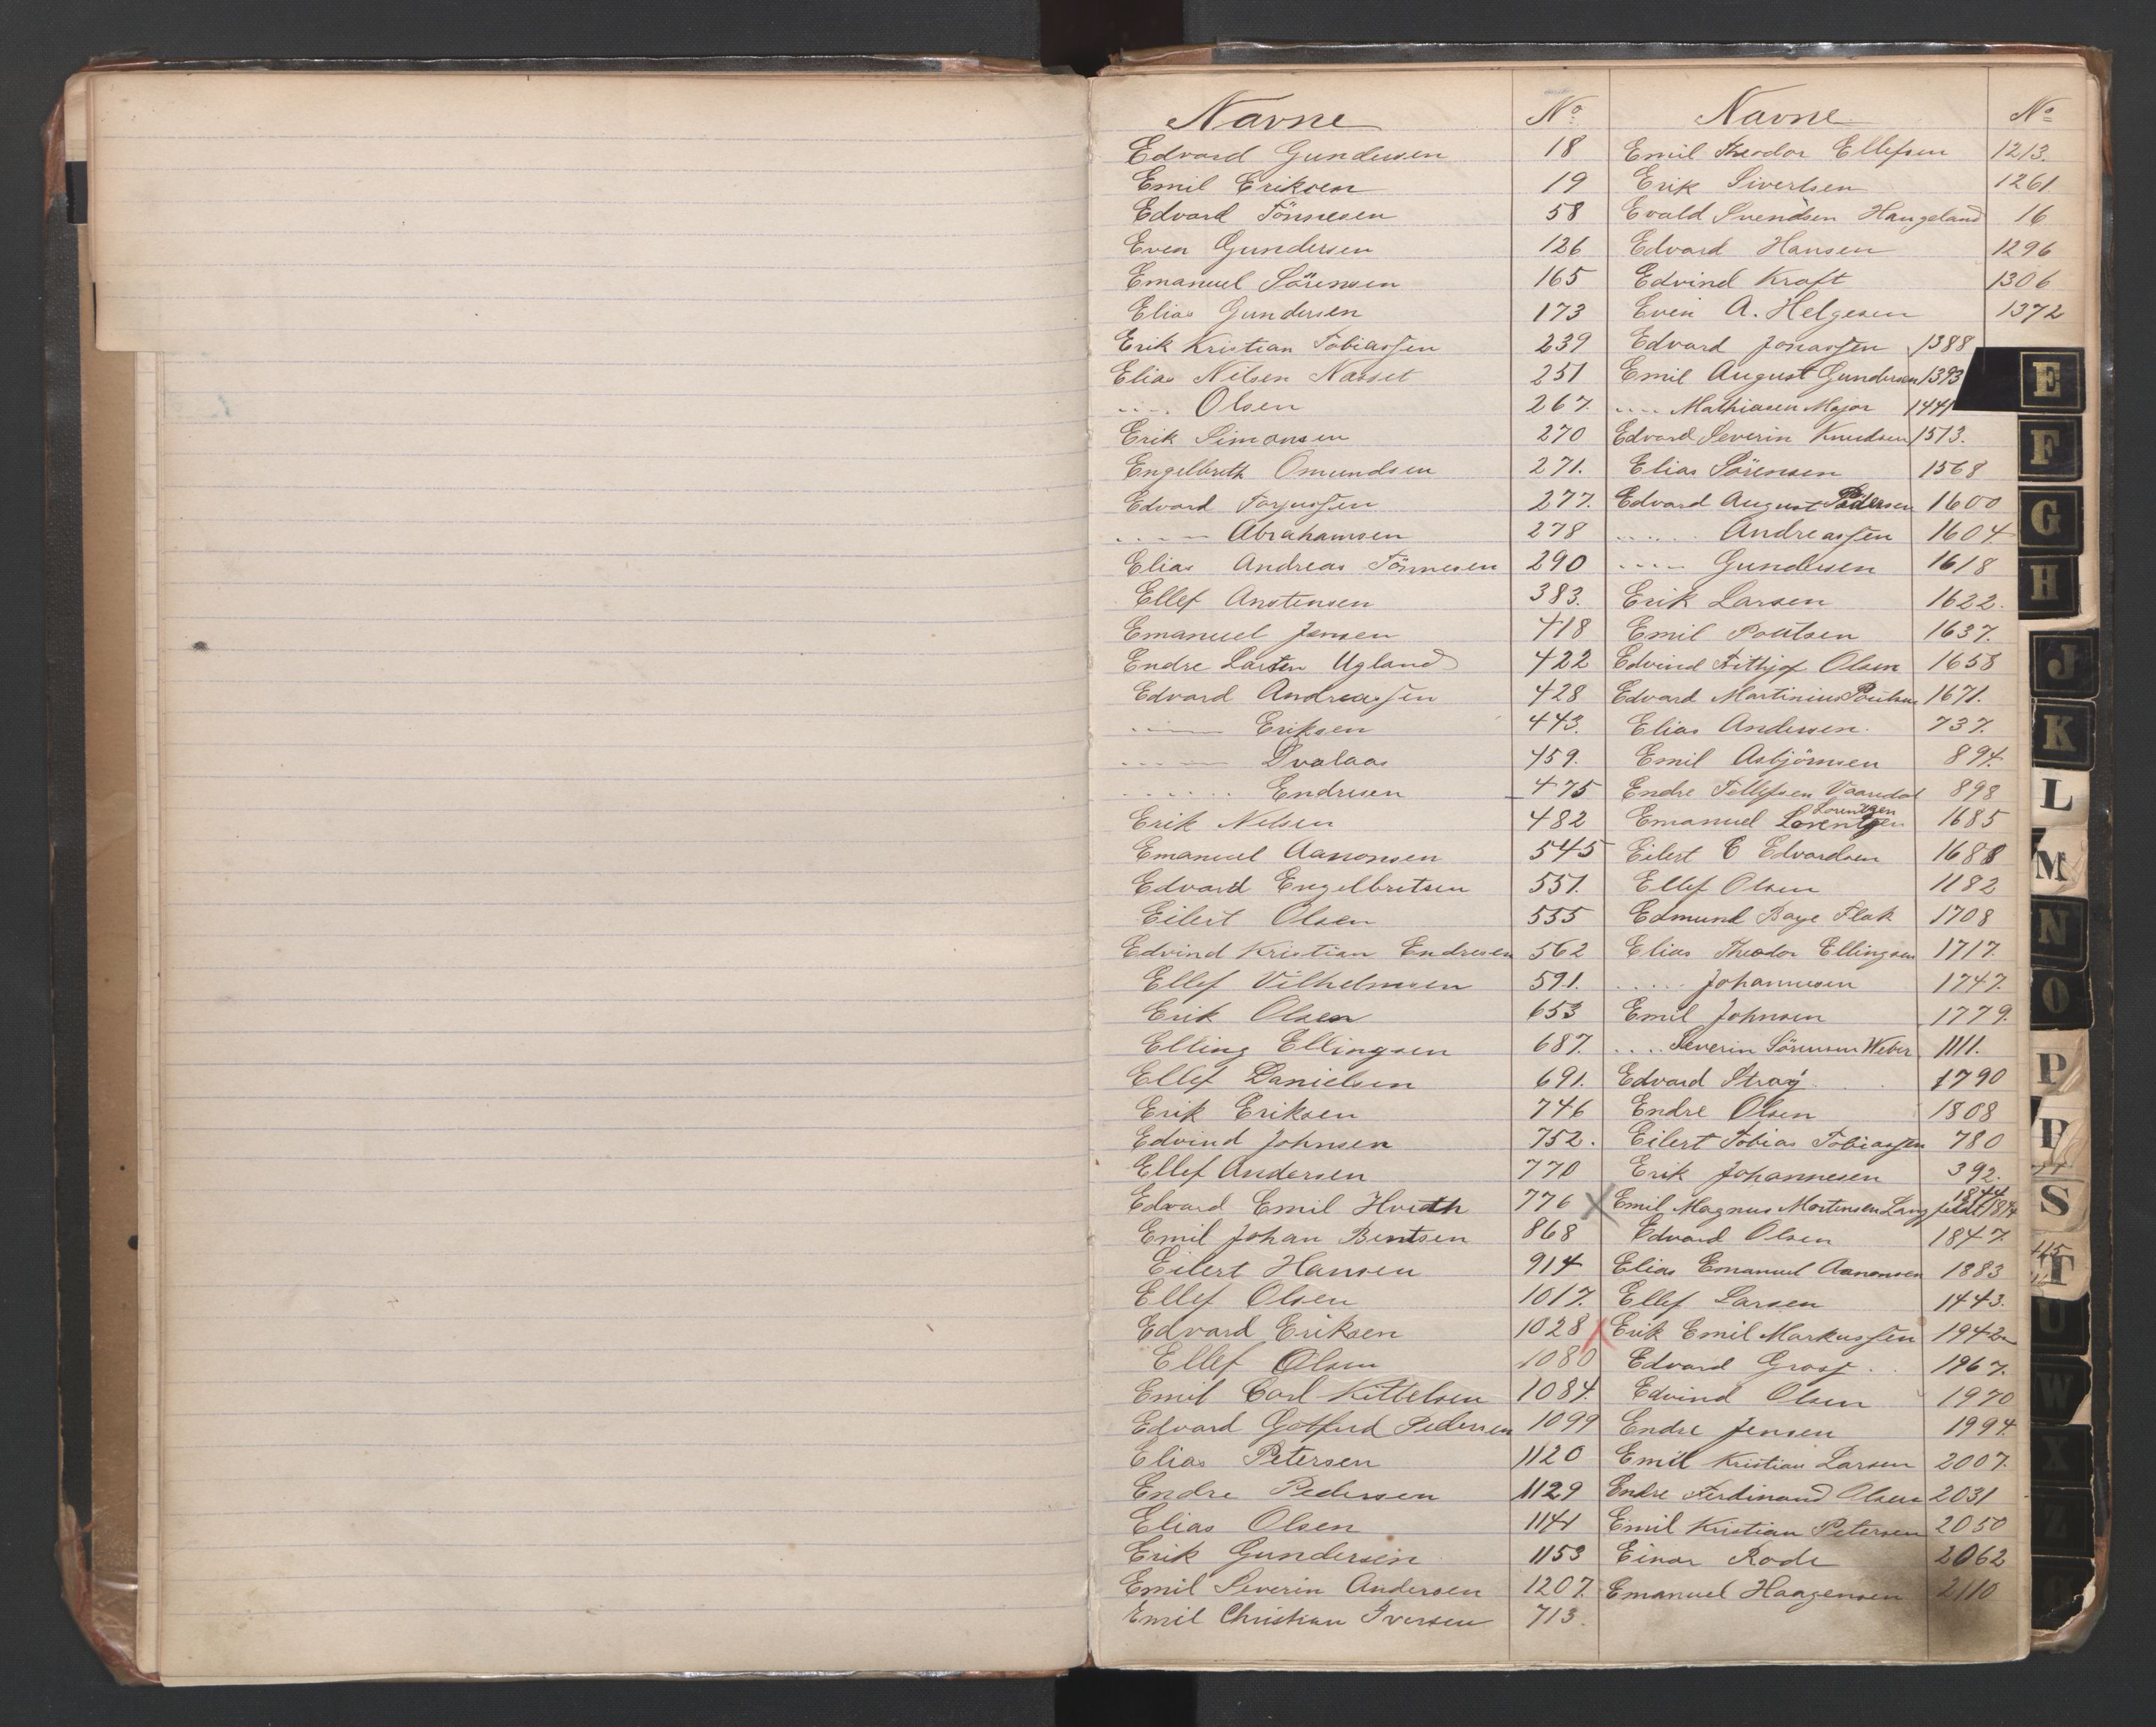 Navne No Navne No
Edvard Gundersen 18 Emil Theodor Ellefsen 1213.
Emil Eriksen 19 Erik Sivertsen 1261.
Edvard Tönnesen 58 Evald Svendsen Haugeland 16
Even Gundersen 126 Edvard Hansen 1296
Emanuel Sörensen 165 Edvind Kraft 1306
Elias Gundersen 173 Even A. Helgesen 1372
Erik Kristian Tobiassen 239 Edvard Jonassen 1388
Elias Nilsen Naset 251 Emil August Gundersen 1393
..... Olsen 267. ..... Mathiasen Major 1441
Erik Simonsen 270 Edvard Severin Knudsen 1513.
Engelbreth Omundsen 271. Elias Sörensen 1568
Edvard Torjussen 277. Edvard August Pedersen 1600
..... Abrahamsen 278 ..... Andreassen 1604
Elias Andreas Tönnesen 290 ..... Gundersen 1618
Ellef Anstensen 383. Erik Larsen 1622.
Emanuel Jensen 418 Emil Poulsen 1637.
Endre Larsen Ugland 422 Edvind Frithjof Olsen 1658
Edvard Andreassen 428 Edvard Martinius Poulsen 1671.
..... Eriksen 443. Elias Andersen. 737.
..... Dvalaas 459. Emil Asbjörnsen 894.
...... Endresen 475 Endre Tellefsen Vaaredal 898
Lorentzen
Erik Nelsen 482 Emanuel Lorentzen 1685
Emanuel Aanonsen 545 Eilert C Edvardsen 1688
Edvard Engelbretsen 551. Ellef Olsen 1182
Eilert Olsen 555 Edmund Baye Flak 1708
Edvind Kristian Endresen 562 Elias Theodor Ellingsen 1717.
Ellef Vilhelmsen 591. ..... Johannesen 1747.
Erik Olsen 653 Emil Johnsen 1779.
Elling Ellingsen 687. .... Severin Sörensen Weber 1111.
Ellef Danielsen 691. Edvard Stray 1790
Erik Eriksen 746 Endre Olsen 1808
Edvind Johnsen 752. Eilert Tobias Tobiassen 780
Ellef Andersen 770 Erik Johannesen 392.
1844
Edvard Emil Hvidth 776 X Emil Magnus Mortensen Langfeldt 1814
Emil Johan Bentsen 868 Edvard Olsen 1847.
Eilert Hansen 914 Elias Emanuel Aanonsen 1883
Ellef Olsen 1017. Ellef Larsen 1443.
Edvard Eriksen 1028 X Erik Emil Markussen 1942
Ellef Olsen 1080 Edvard Grass 1967.
Emil Carl Kittelsen 1084. Edvind Olsen 1970
Edvard Gotfred Pedersen 1099 Endre Jensen 1994.
Elias Petersen 1120 Emil Kristian Larsen 2007.
Endre Pedersen 1129 Endre Ferdinand Olsen 2031
Elias Olsen 1141 Emil Kristian Petersen 2050
Erik Gundersen 1153 Einar Rode 2062
Emil Severin Andersen 1207. Emanuel Haagensen 2110
Emil Christian Iversen 713.
E
F
G
H
J
K
L
M
N
O
P
S
T
U
W
X
Z